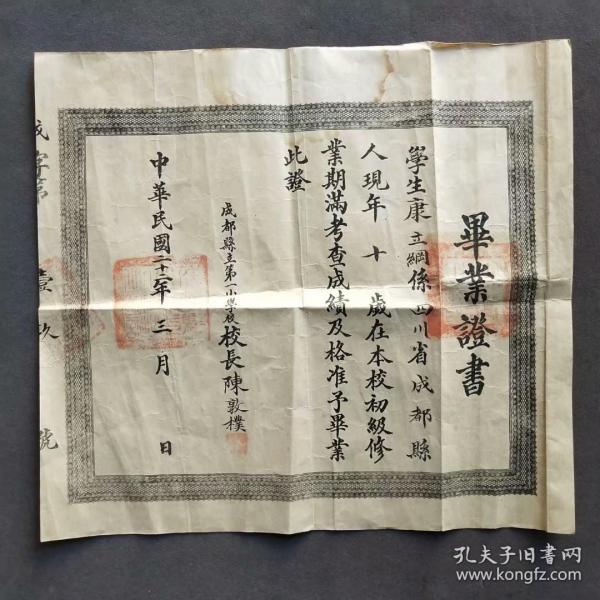 畢業證書
學生康立綱係四川省成都縣
人現年十歲在本校初級修
業期滿考查成績及格准予畢業
此證
成都縣立第一小學校校長陳敦樸
中華民國二十三年三月 日
成字第 壹 玖 號
孔夫子旧书网
www.kongfz.com